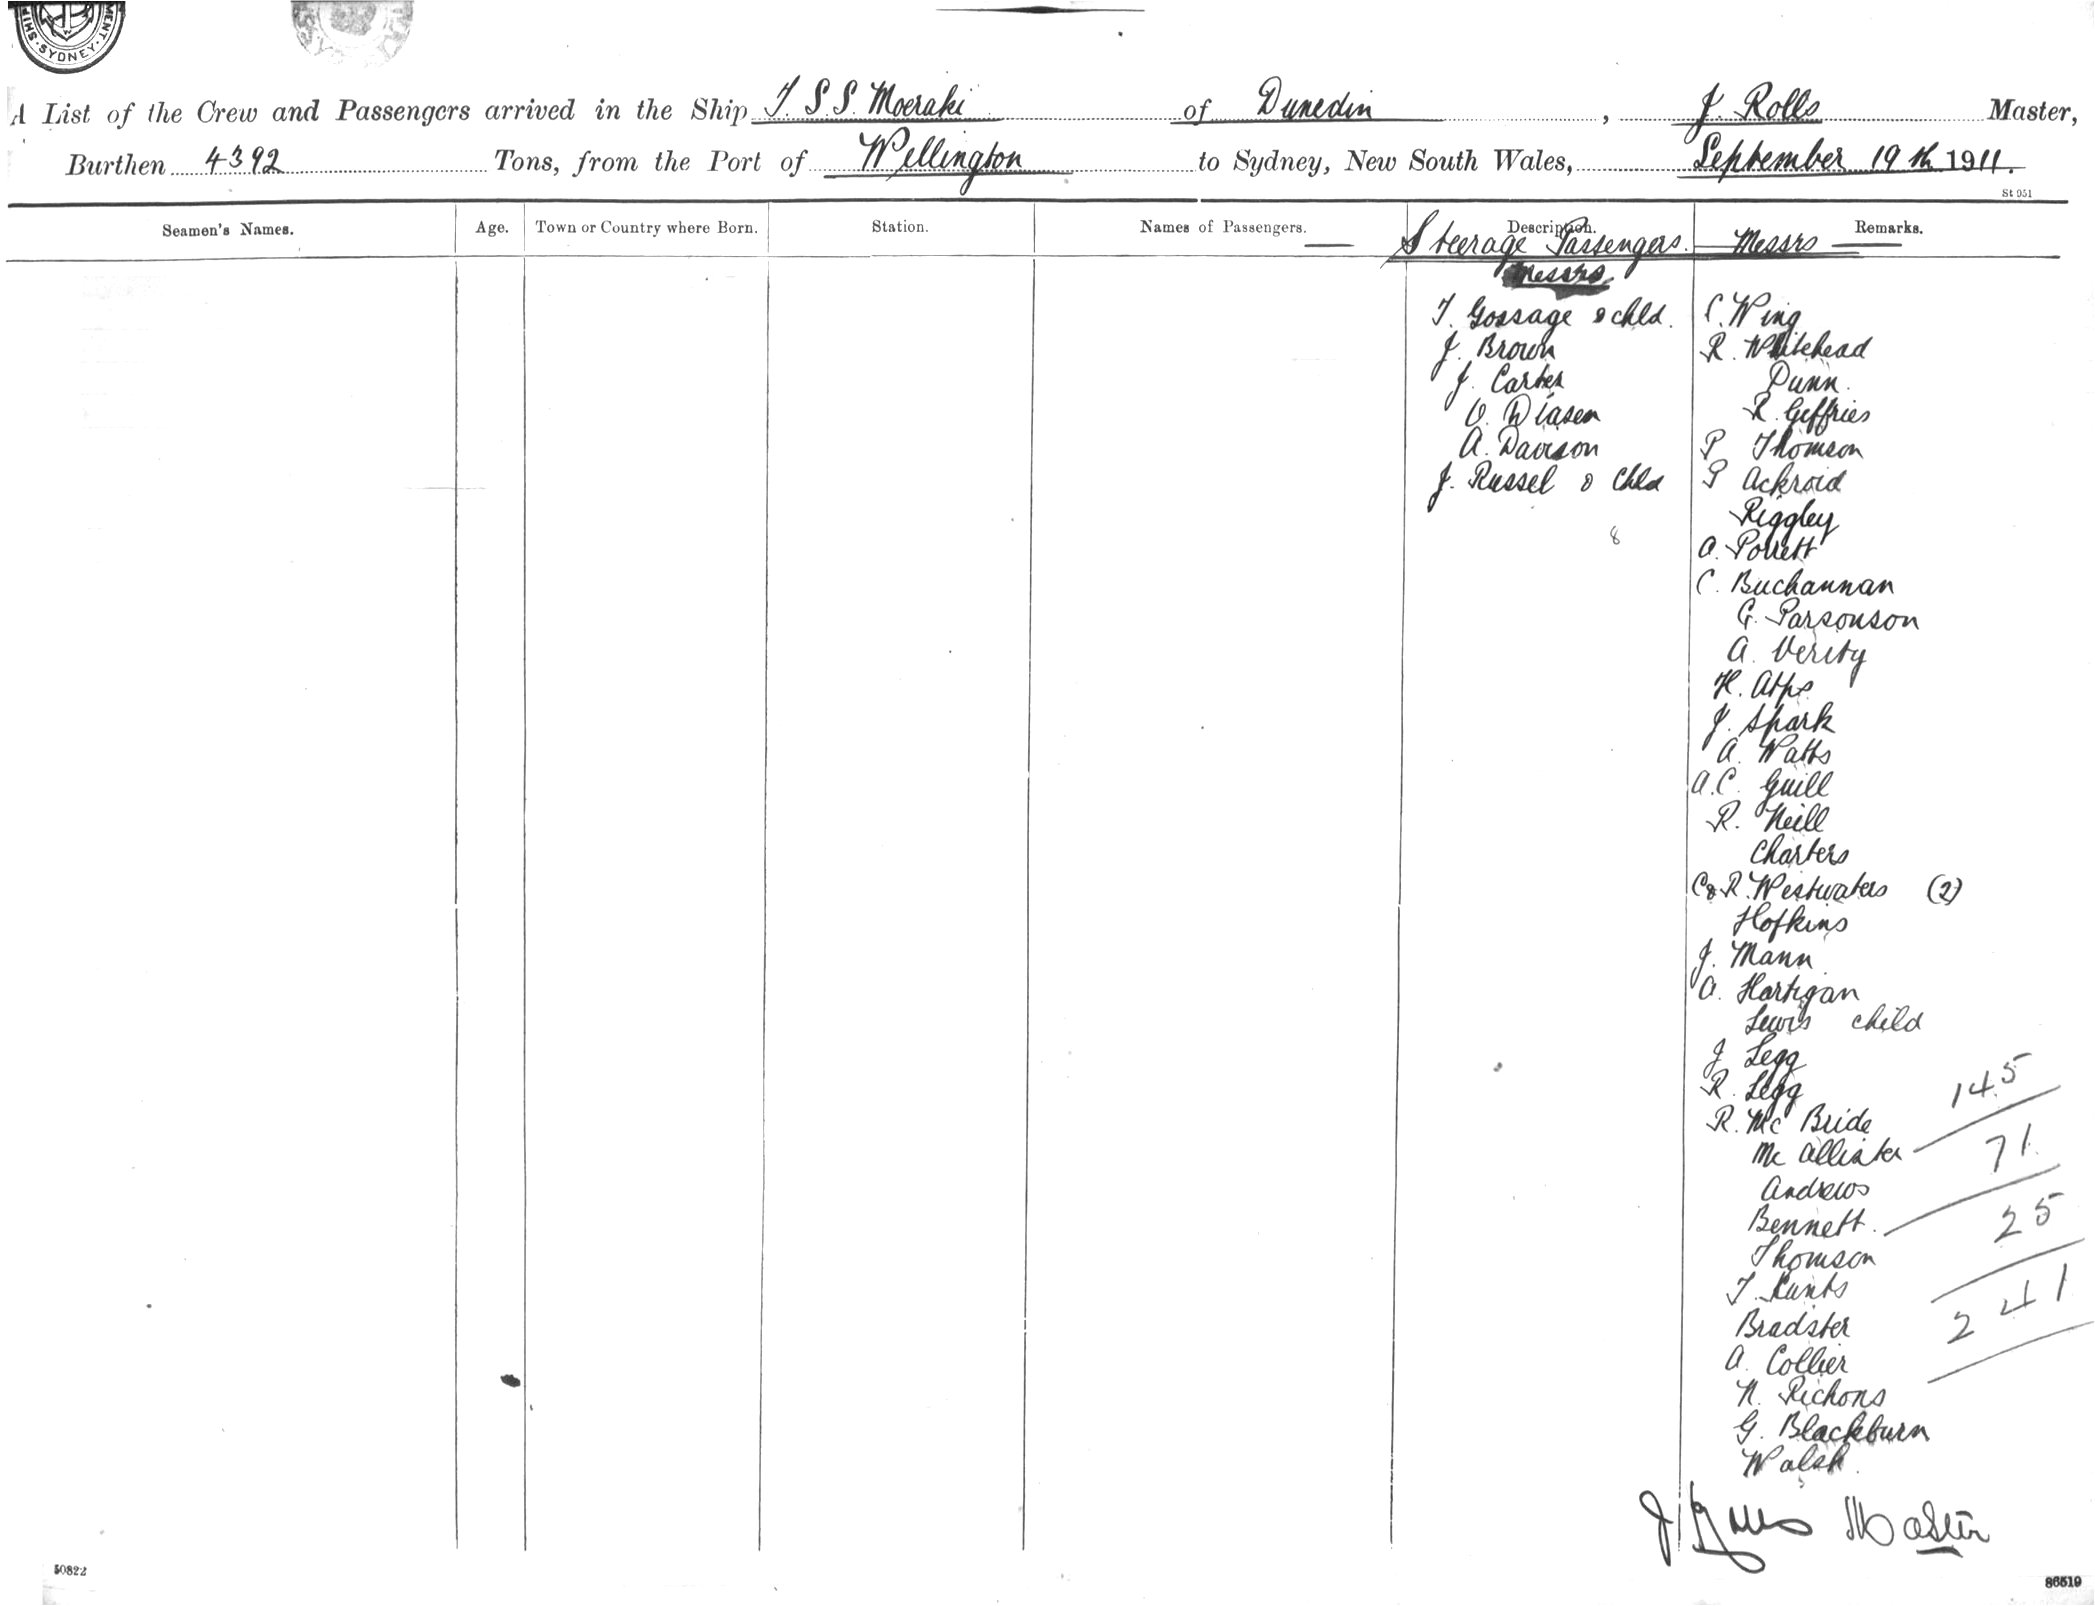 SHIP · SYDNEY · MENT
A List of the Crew and Passengers arrived in the Ship T.S.S. Moeraki of Dunedin, J. Rolls Master,
Burthen 4392 Tons, from the Port of Wellington to Sydney, New South Wales, September 19th 1911.
St 951
Seamen's Names. Age. Town or Country where Born. Station. Names of Passengers. Description. Remarks.
Steerage Passengers. Messrs
Messrs
T. Gossage & chld.
J. Brown
J. Carter
O. Diasen
A. Davison
J. Russel & Chld
8
C. Wing
R. Whitehead
Dunn.
R. Geffries
P Thomson
P Ackroid
Riggley
A. Porrett
C. Buchannan
G. Parsonson
A. Verity
H. Atps
J. Spark
A. Watts
A.C. Guill
R. Neill
Charters
C & R. Westwaters (2)
Hofkins
J. Mann
A. Hartigan
Lewis child
J Legg
R. Legg
R. Mc Bride
Mc Allister
Andrews
Bennett.
Thomson
T. Kunts
Bradster
A. Collier
N. Richons
G. Blackburn
Walsh.
145
71
25
241
J Rolls Master
50822
86519